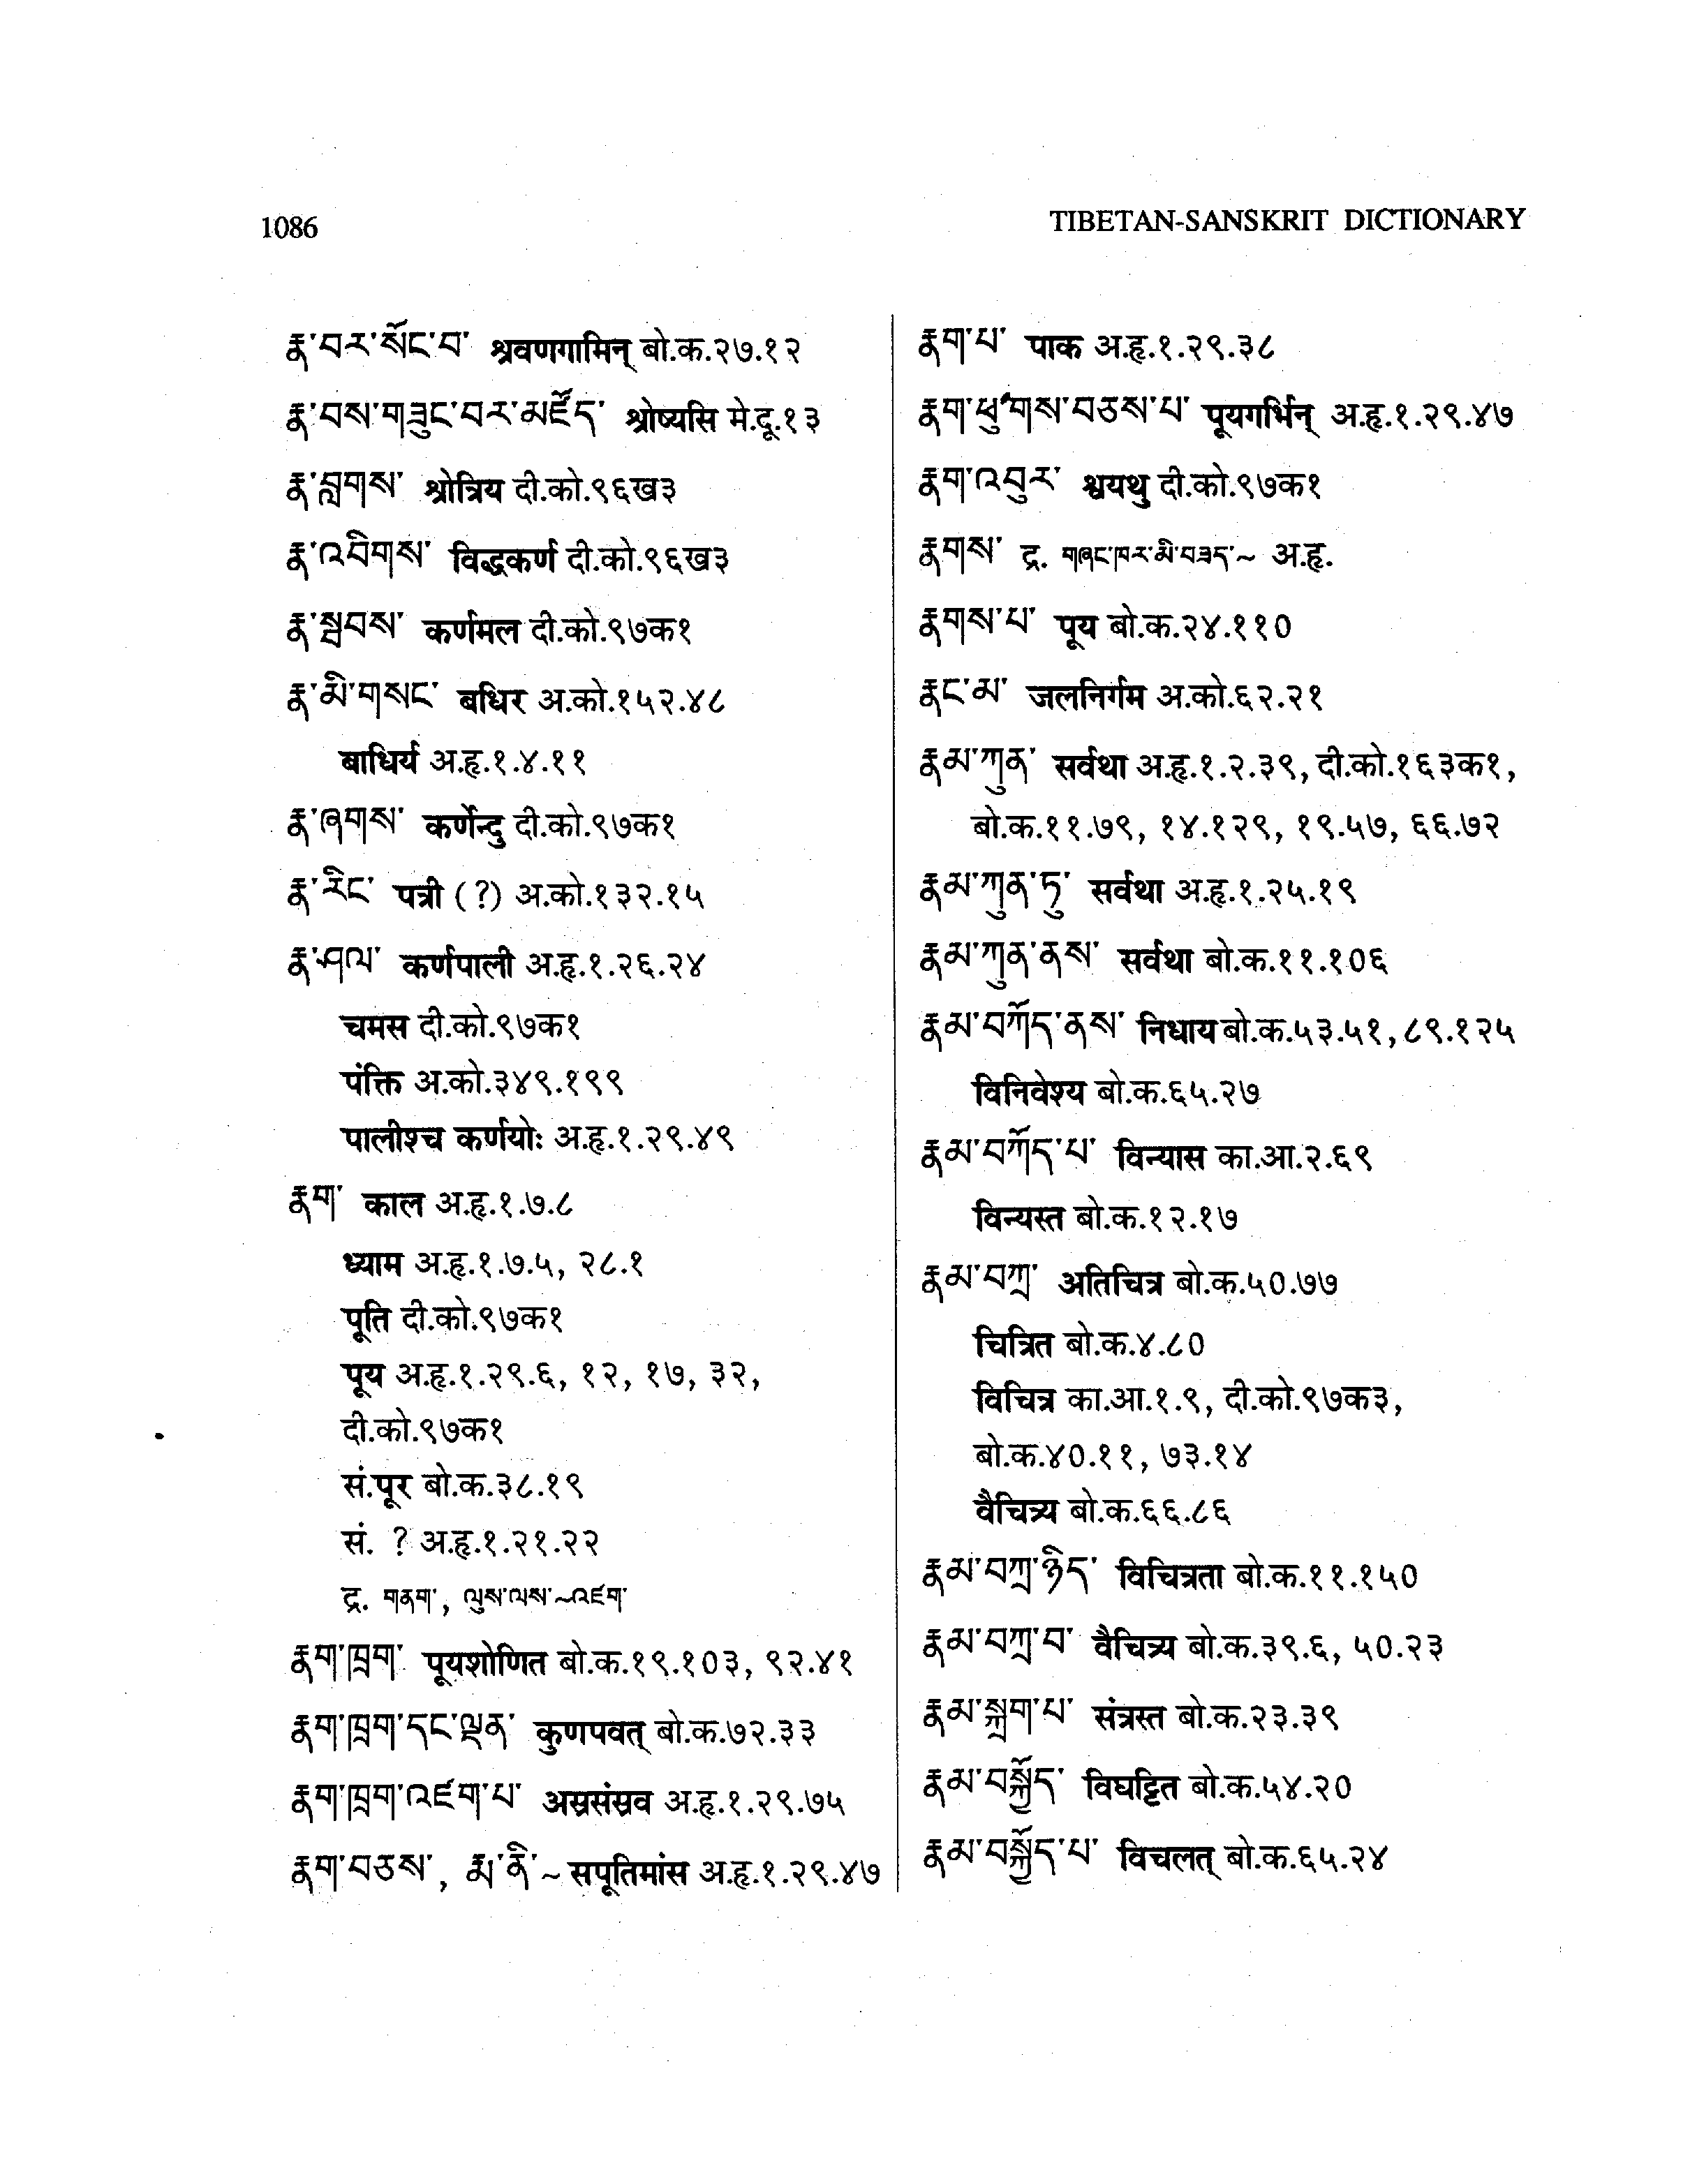 1086
TIBETAN-SANSKRIT DICTIONARY
རྣ་བར་སོང་བ་ श्रवणगामिन् बो.क.२७.१२
རྣ་བས་གཟུང་བར་མཛོད་ श्रोष्यसि मे.दू.१३
རྣ་བླགས་ श्रोत्रिय दी.को.९६ख३
རྣ་འབིགས་ विद्धकर्ण दी.को.९६ख३
རྣ་སྦབས་ कर्णमल दी.को.९७क१
རྣ་མི་གསང་ बधिर अ.को.१५२.४८
बाधिर्य अ.हृ.१.४.११
རྣ་ཞགས་ कर्णेन्दु दी.को.९७क१
རྣ་རིང་ पत्री (?) अ.को.१३२.१५
རྣ་ཤལ་ कर्णपाली अ.हृ.१.२६.२४
चमस दी.को.९७क१
पंक्ति अ.को.३४९.१९९
पालीश्च कर्णयोः अ.हृ.१.२९.४९
རྣག་ काल अ.हृ.१.७.८
ध्याम अ.हृ.१.७.५, २८.१
पूति दी.को.९७क१
पूय अ.हृ.१.२९.६, १२, १७, ३२,
दी.को.९७क१
सं.पूर बो.क.३८.१९
सं. ? अ.हृ.१.२१.२२
द्र. གནག་, ལུས་ལས་~འཛག་
རྣག་ཁྲག་ पूयशोणित बो.क.१९.१०३, ९२.४१
རྣག་ཁྲག་དང་ལྡན་ कुणपवत् बो.क.७२.३३
རྣག་ཁྲག་འཛག་པ་ अस्रसंस्रव अ.हृ.१.२९.७५
རྣག་བཅས་, རྨ་ནི་~ सपूतिमांस अ.हृ.१.२९.४७
རྣག་པ་ पाक अ.हृ.१.२९.३८
རྣག་ཕུགས་བཅས་པ་ पूयगर्भिन् अ.हृ.१.२९.४७
རྣག་འབུར་ श्वयथु दी.को.९७क१
རྣགས་ द्र. གཞང་ཁར་མི་བཟད་~ अ.हृ.
རྣགས་པ་ पूय बो.क.२४.११०
རྣང་མ་ जलनिर्गम अ.को.६२.२१
རྣམ་ཀུན་ सर्वथा अ.हृ.१.२.३९, दी.को.१६३क१,
बो.क.११.७९, १४.१२९, १९.५७, ६६.७२
རྣམ་ཀུན་ཏུ་ सर्वथा अ.हृ.१.२५.१९
རྣམ་ཀུན་ནས་ सर्वथा बो.क.११.१०६
རྣམ་བཀོད་ནས་ निधाय बो.क.५३.५१, ८९.१२५
विनिवेश्य बो.क.६५.२७
རྣམ་བཀོད་པ་ विन्यास का.आ.२.६९
विन्यस्त बो.क.१२.१७
རྣམ་བཀྲ་ अतिचित्र बो.क.५०.७७
चित्रित बो.क.४.८०
विचित्र का.आ.१.९, दी.को.९७क३,
बो.क.४०.११, ७३.१४
वैचित्र्य बो.क.६६.८६
རྣམ་བཀྲ་ཉིད་ विचित्रता बो.क.११.१५०
རྣམ་བཀྲ་བ་ वैचित्र्य बो.क.३९.६, ५०.२३
རྣམ་སྐྲག་པ་ संत्रस्त बो.क.२३.३९
རྣམ་བསྐྱོད་ विघट्टित बो.क.५४.२०
རྣམ་བསྐྱོད་པ་ विचलत् बो.क.६५.२४